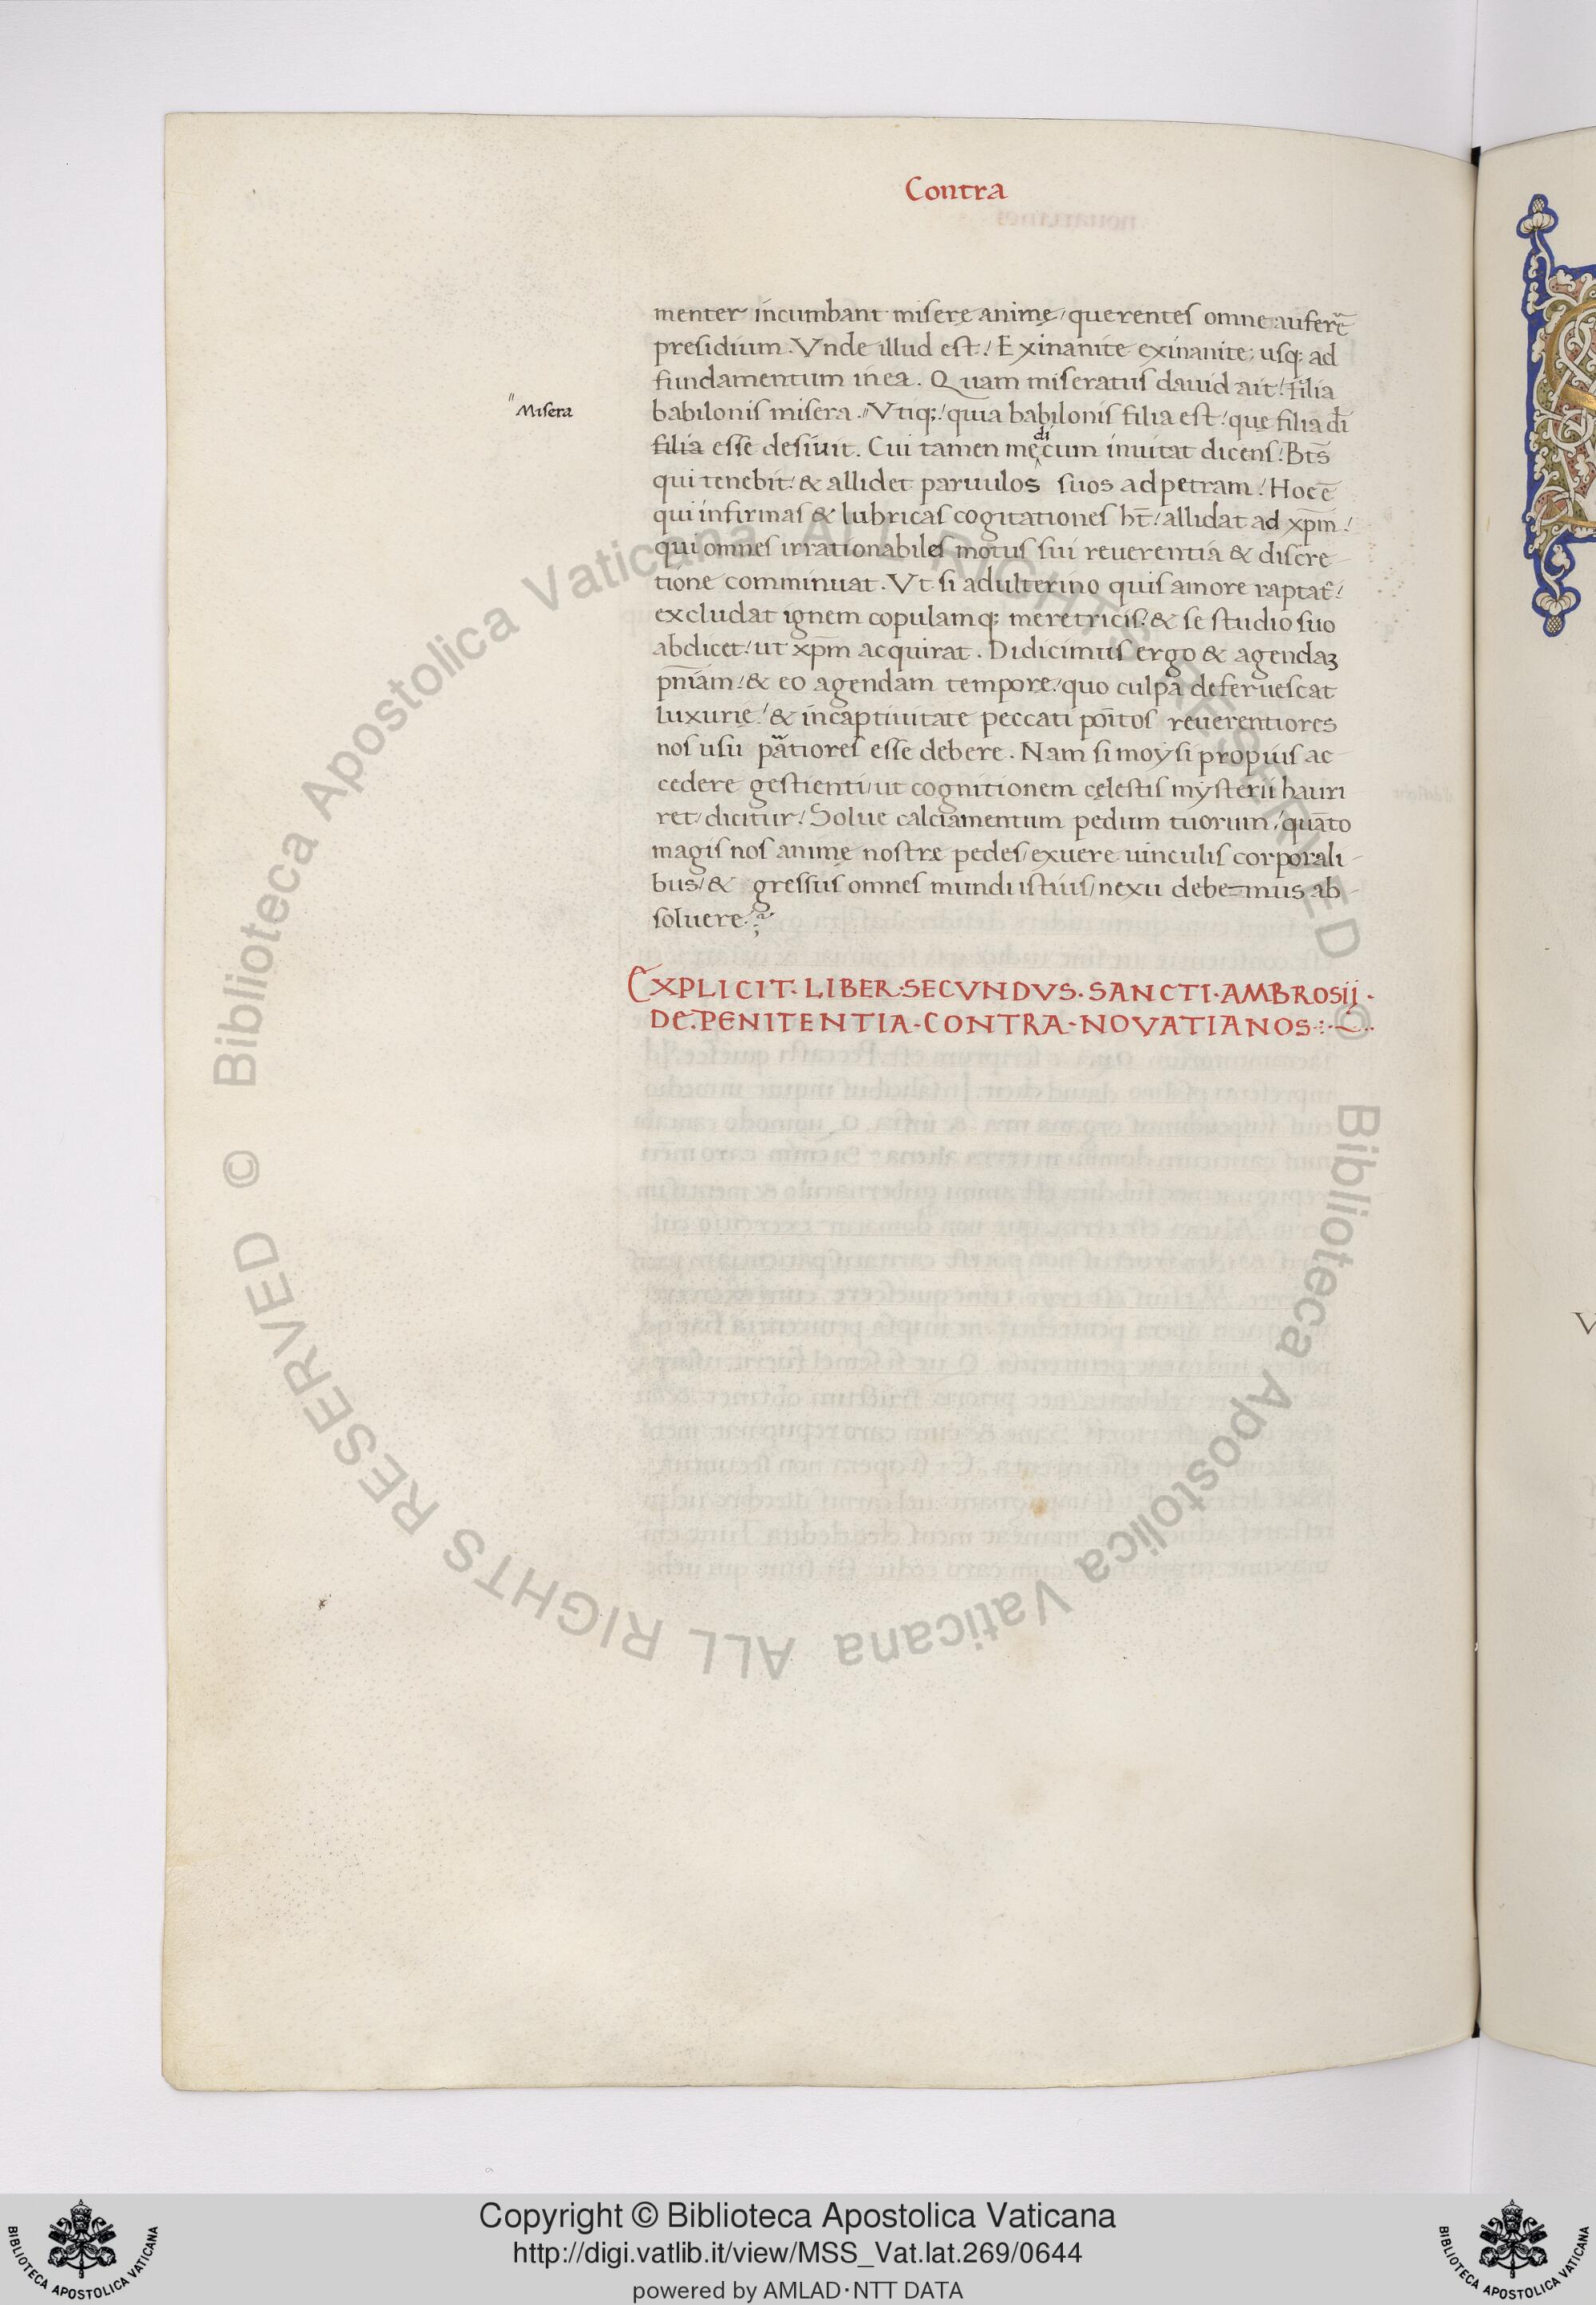 Contra
menter incumbant miserę animę / querentes omne auferr̄e
presidium. Vnde illud est! Exinanite exinanite; usq; ad
fundamentum in ea. Quam miseratus dauid ait! filia
Misera
babilonis misera. Vtiq;! quia babilonis filia est! quę filia dī
filia esse desiuit. Cui tamen medicum inuitat dicens! Bt̄s
qui tenebit! & allidet paruulos suos ad petram! Hoc ē
qui infirmas & lubricas cogitationes ht̄! allidat ad xp̄m!
qui omnes irrationabiles motus sui reuerentia & discre
tione comminuat. Vt si adulterino quis amore raptat᷑!
excludat ignem copulamq; meretricis! & se studio suo
abdicet! ut xp̄m acquirat. Didicimus ergo & agendaꝫ
pn̄iam! & eo agendam tempore! quo culpa deferuescat
luxurię! & in captiuitate peccati poītos reuerentiores
nos usu patiores esse debere. Nam si moysi propius ac
cedere gestienti / ut cognitionem cęlestis mysterii hauri
ret / dicitur! Solue calciamentum pedum tuorum! quāto
magis nos animę nostrę pedes / exuere uinculis corporali
bus / & gressus omnes mundi istius / nexu debemus ab
soluere
EXPLICIT. LIBER. SECVNDVS. SANCTI. AMBROSIJ.
DE. PENITENTIA. CONTRA. NOVATIANOS
© Biblioteca Apostolica Vaticana ALL RIGHTS RESERVED
© Biblioteca Apostolica Vaticana ALL RIGHTS RESERVED
Copyright © Biblioteca Apostolica Vaticana
http://digi.vatlib.it/view/MSS_Vat.lat.269/0644
powered by AMLAD·NTT DATA
BIBLIOTECA APOSTOLICA VATICANA
BIBLIOTECA APOSTOLICA VATICANA